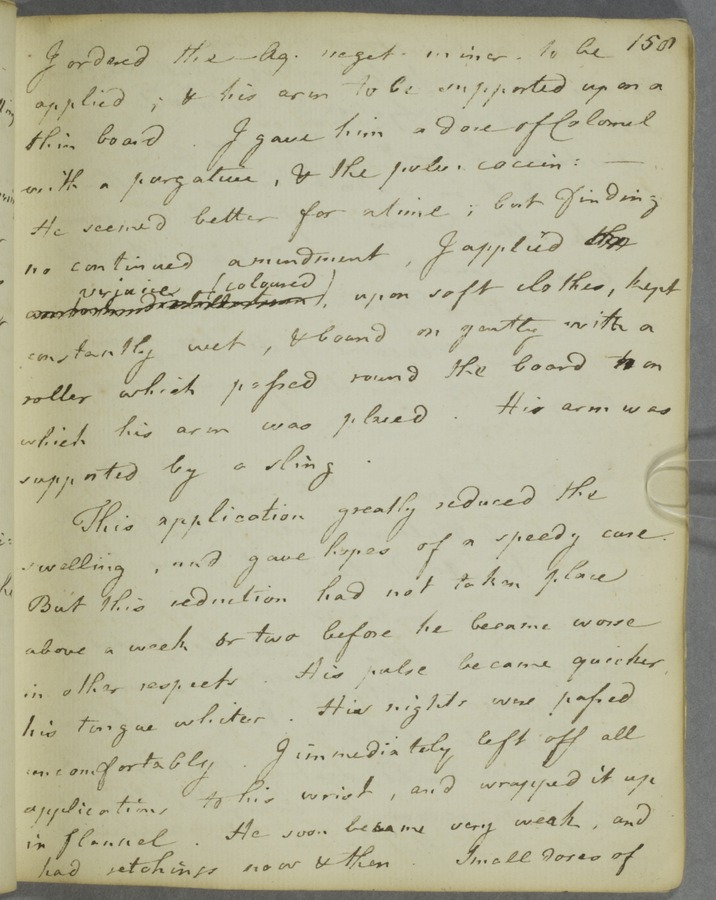 150
I ordered the Aq. veget. miner. to be
applied ; & his arm to be supported upon a
thin board . I gave him a dose of Calomel
with a purgative, & the pulv. coccin: —
He seemed better for a time ; but finding
no continued amendment, I applied the
verjuice (coloured)
, upon soft clothes, kept
constantly wet, & bound on gently with a
roller which passed round the board on
which his arm was placed . His arm was
supported by a sling .
This application greatly reduced the
swelling , and gave hopes of a speedy cure.
But this reduction had not taken place
above a week or two before he became worse
in other respects . His pulse became quicker,
his tongue whiter . His nights were passed
uncomfortably . I immediately left off all
applications to his wrist, and wrapped it up
in flannel . He soon became very weak, and
had retchings now & then . Small doses of